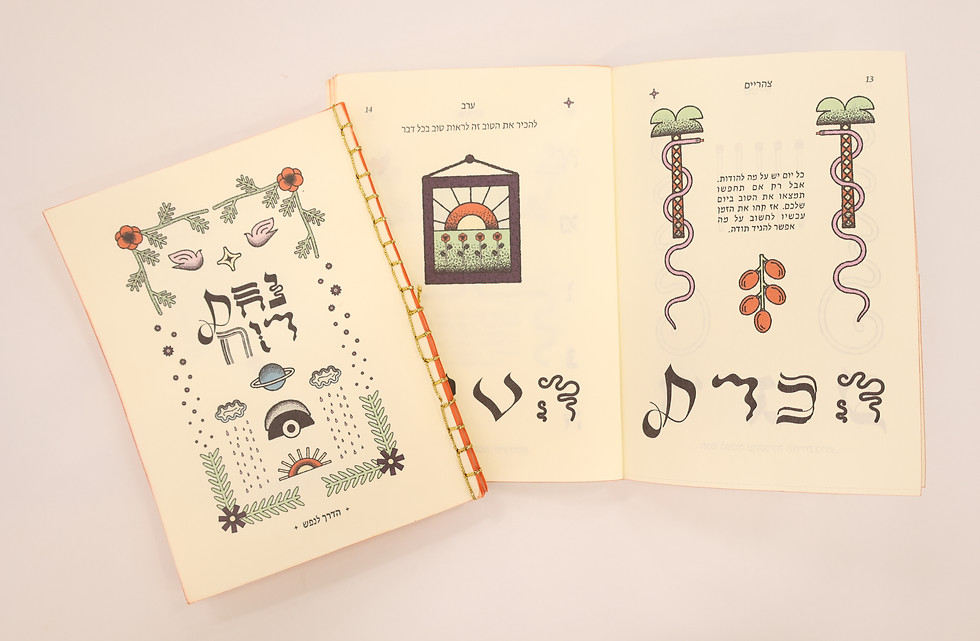 13
צהריים
כל יום יש על מה להודות.
אבל רק אם תחפשו
תמצאו את הטוב ביום
שלכם. אז קחו את הזמן
עכשיו לחשוב על מה
אפשר להגיד תודה.
הכרת
14
ערב
להכיר את הטוב זה לראות טוב בכל דבר
נחת
רוח
הדרך לנפש